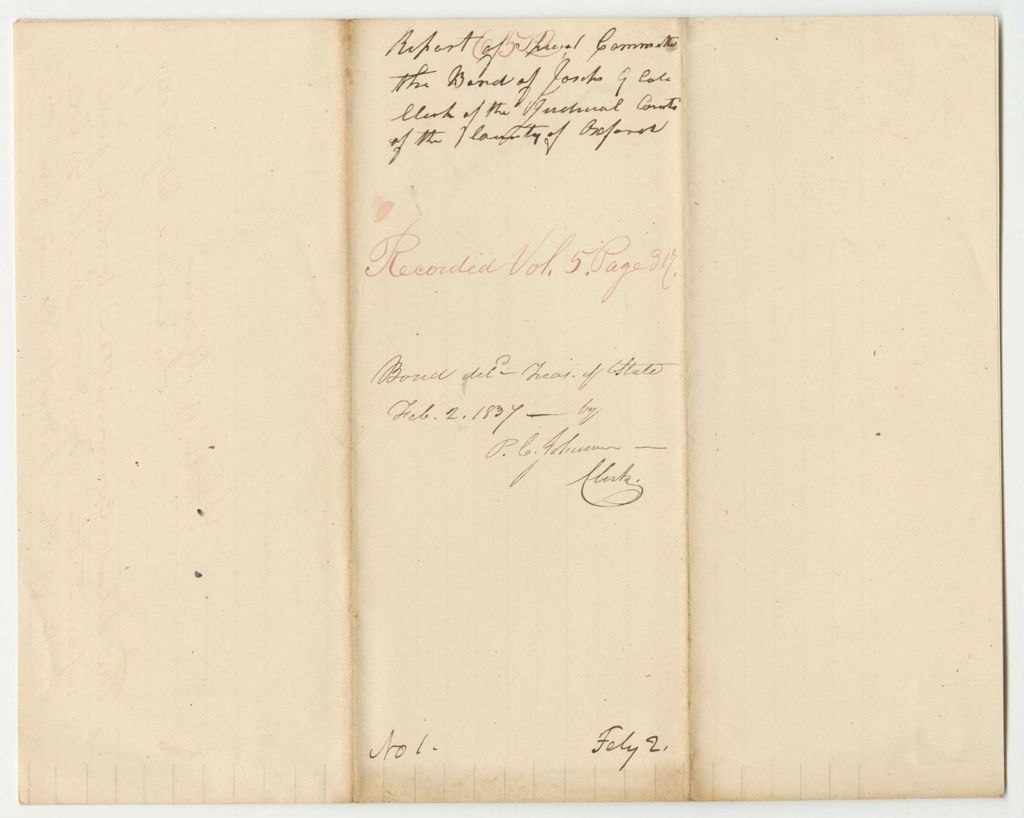 Report of Special Committee
the Bond of Joseph G Cole
Clerk of the Judicial Courts
of the County of Oxford
Recorded Vol. 5. Page 317.
Bond deld Treas. of State
Feb. 2. 1837 — by
P. C. Johnson —
Clerk.
No 1.
Feby 2.